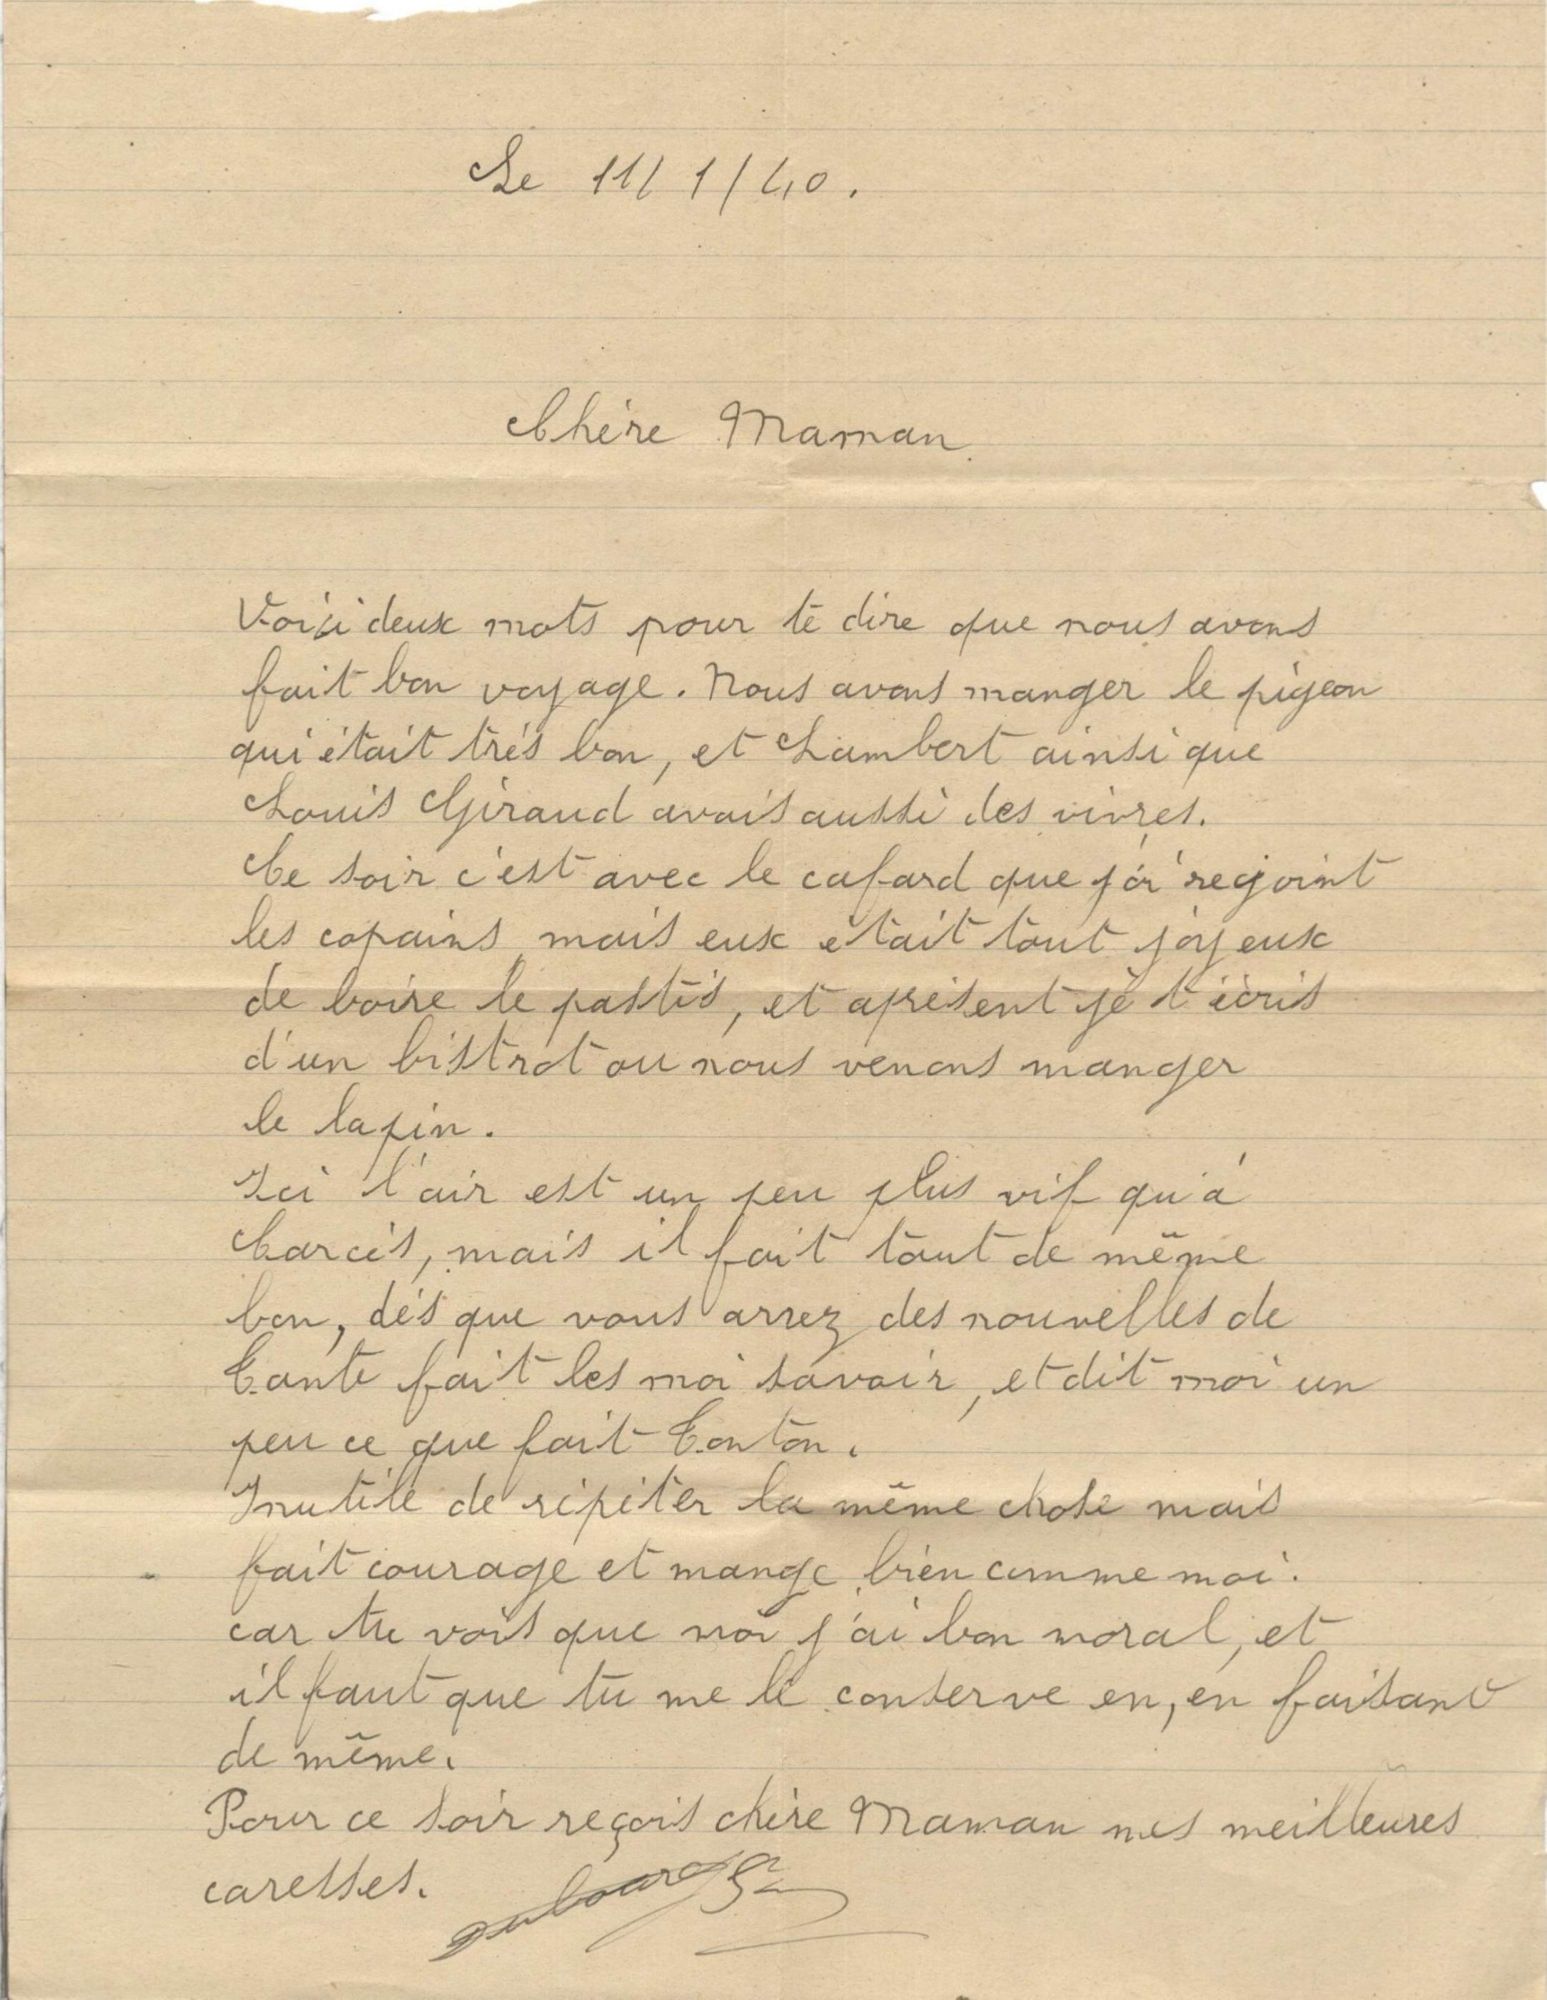 Le 11/1/40.
Chère Maman
Voici deux mots pour te dire que nous avons
fait bon voyage. Nous avons manger le pigeon
qui était trés bon, et Lambert ainsi que
Louis Giraud avais aussi des vivres.
Ce soir c'est avec le cafard que j'ai rejoint
les copains mais eux etait tout joyeux
de boire le pastis, et aprésent je t'écris
d'un bistrot ou nous venons manger
le lapin.
Ici l'air est un peu plus vif qu'á
Carcés, mais il fait tout de même
bon, dés que vous arrez des nouvelles de
Tante fait les moi savoir, et dit moi un
peu ce que fait Tonton.
Inutile de répéter la même chose mais
fait courage et mange bien comme moi.
car tu vois que moi j'ai bon moral, et
il faut que tu me le conserve en, en faisant
de même.
Pour ce soir reçois chère Maman mes meilleures
caresses.